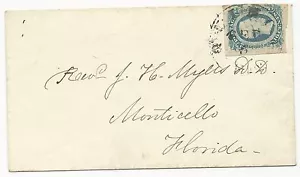 Revd. J. H. Myers D.D.
Monticello
Florida